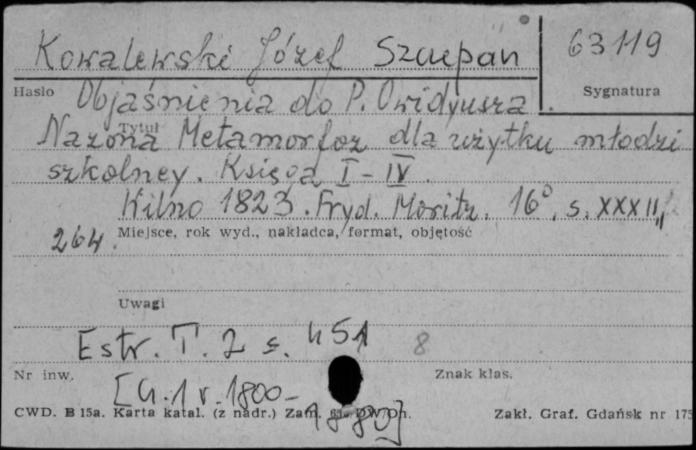 Kowalewski Józef Szczepan 63119
Hasło Sygnatura
Objaśnienia do P. Owidyusza
Tytuł
Nazona Metamorfoz dla użytku młodzi
szkolney. Księga I-IV.
Wilno 1823. Fryd. Moritz. 16°, s. XXXII,
264. Miejsce, rok wyd., nakładca, format, objętość
Uwagi
Estr. T. 2 s. 451 8
Nr inw. Znak klas.
[Cz. 1 r. 1800-
1880]
CWD. B 15a. Karta katal. (z nadr.) Zam. Zakł. Graf. Gdańsk nr 175